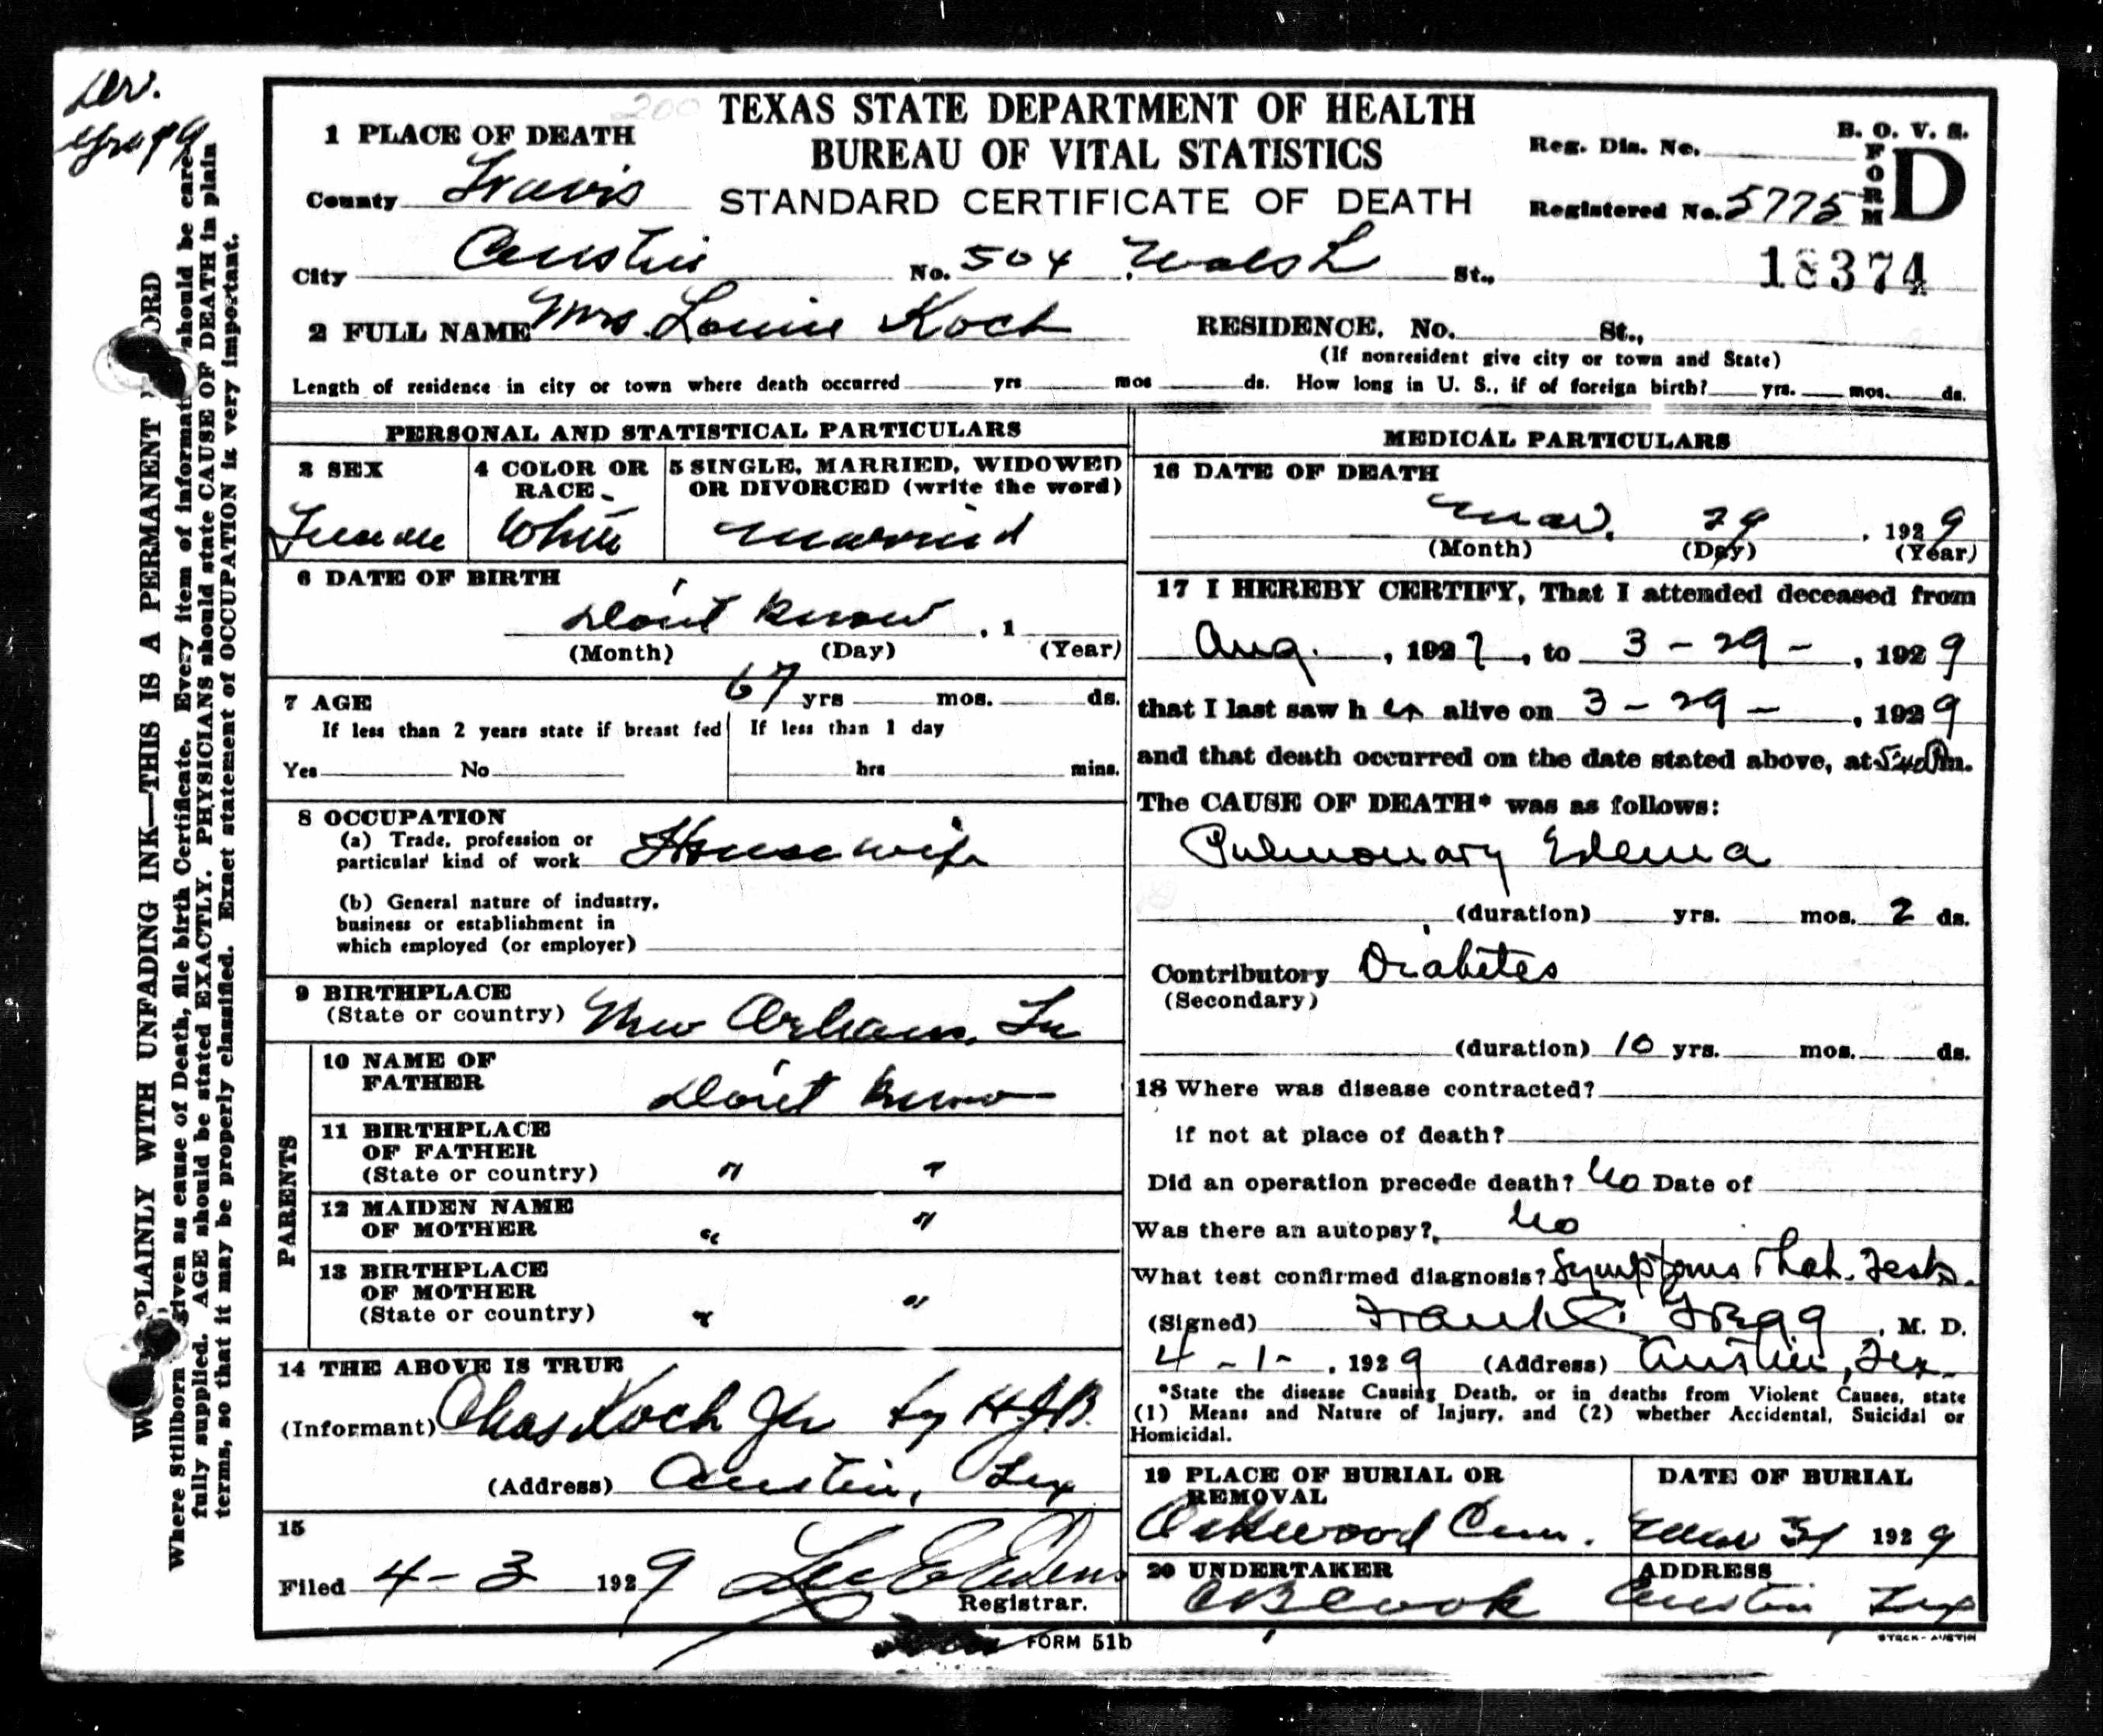 TEXAS STATE DEPARTMENT OF HEALTH
BUREAU OF VITAL STATISTICS
STANDARD CERTIFICATE OF DEATH
B. O. V. S.
FORM D
Reg. Dis. No.
Registered No. 5775
18374
1 PLACE OF DEATH
County Travis
City Austin No. 504 Walsh St.,
2 FULL NAME Mrs. Louise Koch
RESIDENCE. No. St.,
(If nonresident give city or town and State)
Length of residence in city or town where death occurred yrs mos ds. How long in U. S., if of foreign birth? yrs. mos. ds.
PERSONAL AND STATISTICAL PARTICULARS
3 SEX
Female
4 COLOR OR RACE
White
5 SINGLE, MARRIED, WIDOWED
OR DIVORCED (write the word)
Married
6 DATE OF BIRTH
Don't Know , 1
(Month) (Day) (Year)
7 AGE 67 yrs mos. ds.
If less than 2 years state if breast fed
Yes No
If less than 1 day
hrs mins.
8 OCCUPATION
(a) Trade, profession or
particular kind of work House wife
(b) General nature of industry,
business or establishment in
which employed (or employer)
9 BIRTHPLACE
(State or country) New Orleans, La
PARENTS
10 NAME OF
FATHER Don't Know
11 BIRTHPLACE
OF FATHER
(State or country) " "
12 MAIDEN NAME
OF MOTHER " "
13 BIRTHPLACE
OF MOTHER
(State or country) " "
14 THE ABOVE IS TRUE
(Informant) Chas Koch Jr by H.J.B.
(Address) Austin, Tex
15
Filed 4-3 1929 Lee E Edens
Registrar.
MEDICAL PARTICULARS
16 DATE OF DEATH
Mar. 29 , 1929
(Month) (Day) (Year)
17 I HEREBY CERTIFY, That I attended deceased from
Aug. , 1927 , to 3-29- , 1929
that I last saw h er alive on 3-29- , 1929
and that death occurred on the date stated above, at 5:40 Pm.
The CAUSE OF DEATH* was as follows:
Pulmonary Edema
(duration) yrs. mos. 2 ds.
Contributory Diabetes
(Secondary)
(duration) 10 yrs. mos. ds.
18 Where was disease contracted?
if not at place of death?
Did an operation precede death? No Date of
Was there an autopsy? No
What test confirmed diagnosis? Symptoms & Lab. Tests.
(Signed) Frank C. Gregg , M. D.
4-1- , 1929 (Address) Austin, Tex.
*State the disease Causing Death, or in deaths from Violent Causes, state
(1) Means and Nature of Injury, and (2) whether Accidental, Suicidal or
Homicidal.
19 PLACE OF BURIAL OR
REMOVAL
Oakwood Cem.
DATE OF BURIAL
Mar 31 1929
20 UNDERTAKER
C B Cook
ADDRESS
Austin Tex
FORM 51b
STECK-AUSTIN
PLAINLY WITH UNFADING INK—THIS IS A PERMANENT
Where Stillborn given as cause of Death, file birth Certificate. Every item of information should be care-
fully supplied. AGE should be stated EXACTLY. PHYSICIANS should state CAUSE OF DEATH in plain
terms, so that it may be properly classified. Exact statement of OCCUPATION is very important.